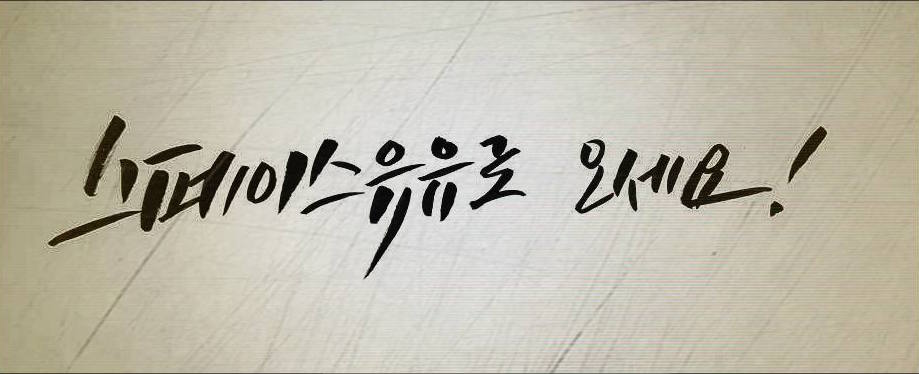 스페이스유유로 오세요!